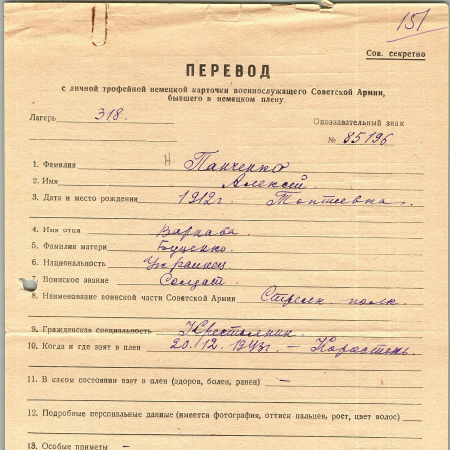 151
Сов. секретно
ПЕРЕВОД
с личной трофейной немецкой карточки военнослужащего Советской Армии,
бывшего в немецком плену
Лагерь 318.
Опознавательный знак
№ 85196
1. Фамилия Панченко
2. Имя Алексей.
3. Дата и место рождения 1912г. Топтиевка.
4. Имя отца Варнава.
5. Фамилия матери Буценко.
6. Национальность Украинец.
7. Воинское звание Солдат.
8. Наименование воинской части Советской Армии Стрелк. полк.
9. Гражданская специальность Крестьянин.
10. Когда и где взят в плен 20.12.1943г. – Коростень.
11. В каком состоянии взят в плен (здоров, болен, ранен) –
12. Подробные персональные данные (имеется фотография, оттиск пальцев, рост, цвет волос)
13. Особые приметы –